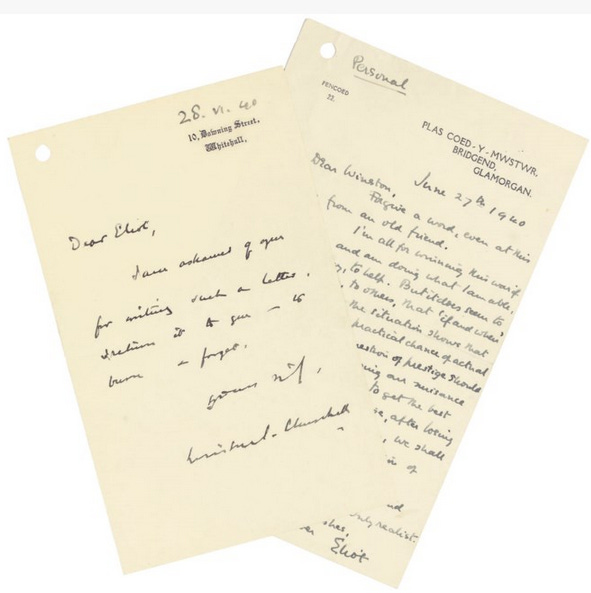 28. VI. 40
10, Downing Street,
Whitehall.
Dear Eliot,
I am ashamed of you
for writing such a letter.
I return it to you — to
burn & forget.
yours
Winston S. Churchill
Personal
PENCOED
22.
PLAS COED-Y-MWSTWR,
BRIDGEND,
GLAMORGAN.
June 27th 1940
Dear Winston,
Forgive a word, even at this
from an old friend.
I'm all for winning this war if
and am doing what I am able,
to help. But it does seem to
to others, that 'if and when'
the situation shows that
practical chance of actual
question of prestige should
using our nuisance
to get the best
after losing
, we shall
of
nd
only realist.
shes,
er
Eliot